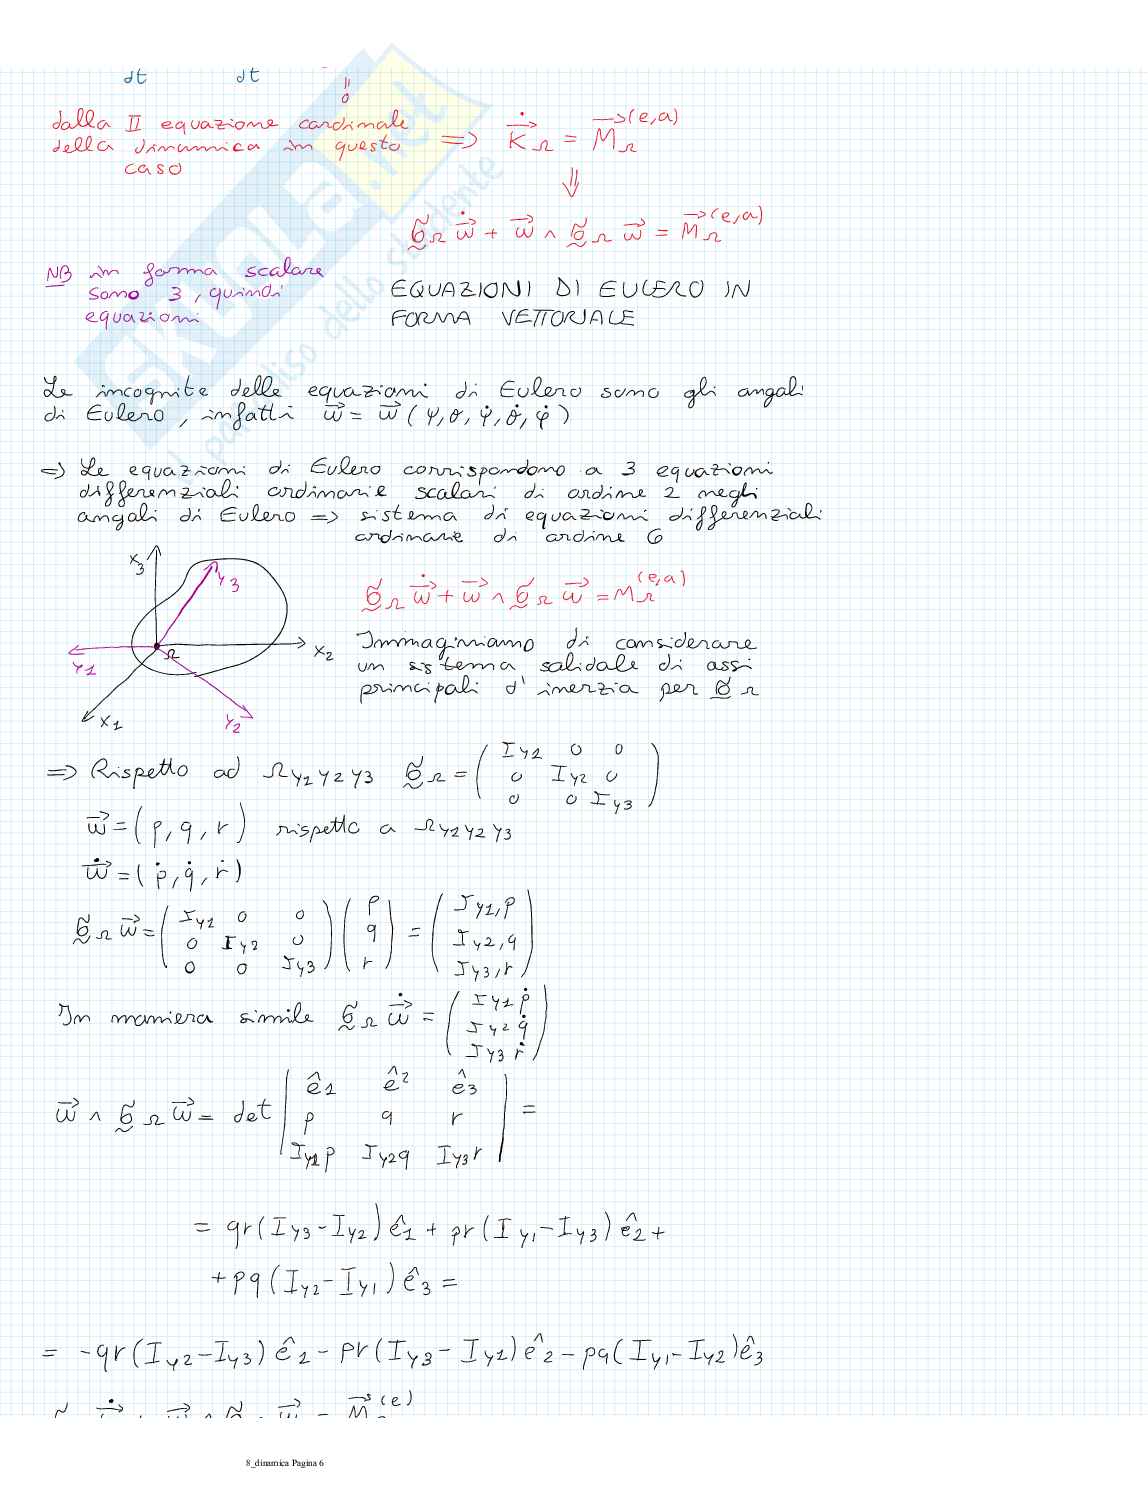 dt dt
= 0
dalla II equazione cardinale
della dinamica in questo
caso
=> K̇⃗_Ω = M⃗_Ω^(e,a)
⇓
σ̃_Ω ω̇⃗ + ω⃗ ∧ σ̃_Ω ω⃗ = M⃗_Ω^(e,a)
NB in forma scalare
sono 3, quindi
equazioni
EQUAZIONI DI EULERO IN
FORMA VETTORIALE
Le incognite delle equazioni di Eulero sono gli angoli
di Eulero, infatti ω⃗ = ω⃗ (ψ, θ, ψ̇, θ̇, φ̇)
=> Le equazioni di Eulero corrispondono a 3 equazioni
differenziali ordinarie scalari di ordine 2 negli
angoli di Eulero => sistema di equazioni differenziali
ordinarie di ordine 6
x3
y3
Ω
x2
y1
x1
y2
σ̃_Ω ω̇⃗ + ω⃗ ∧ σ̃_Ω ω⃗ = M_Ω^(e,a)
Immaginiamo di considerare
un sistema solidale di assi
principali d'inerzia per σ̃_Ω
=> Rispetto ad Ωy1y2y3 σ̃_Ω = ( I_y1 0 0
0 I_y2 0
0 0 I_y3 )
ω⃗ = (p, q, r) rispetto a Ωy1y2y3
ω̇⃗ = (ṗ, q̇, ṙ)
σ̃_Ω ω⃗ = ( I_y1 0 0
0 I_y2 0
0 0 I_y3 ) ( p
q
r ) = ( I_y1, p
I_y2, q
I_y3, r )
In maniera simile σ̃_Ω ω̇⃗ = ( I_y1 ṗ
I_y2 q̇
I_y3 ṙ )
ω⃗ ∧ σ̃_Ω ω⃗ = det | ê1 ê2 ê3
p q r
I_y1 p I_y2 q I_y3 r | =
= qr(I_y3 - I_y2) ê1 + pr(I_y1 - I_y3) ê2 +
+ pq(I_y2 - I_y1) ê3 =
= -qr(I_y2 - I_y3) ê1 - pr(I_y3 - I_y1) ê2 - pq(I_y1 - I_y2) ê3
M⃗^(e)
8_dinamica Pagina 6
SKUOLA.net
il paradiso dello studente